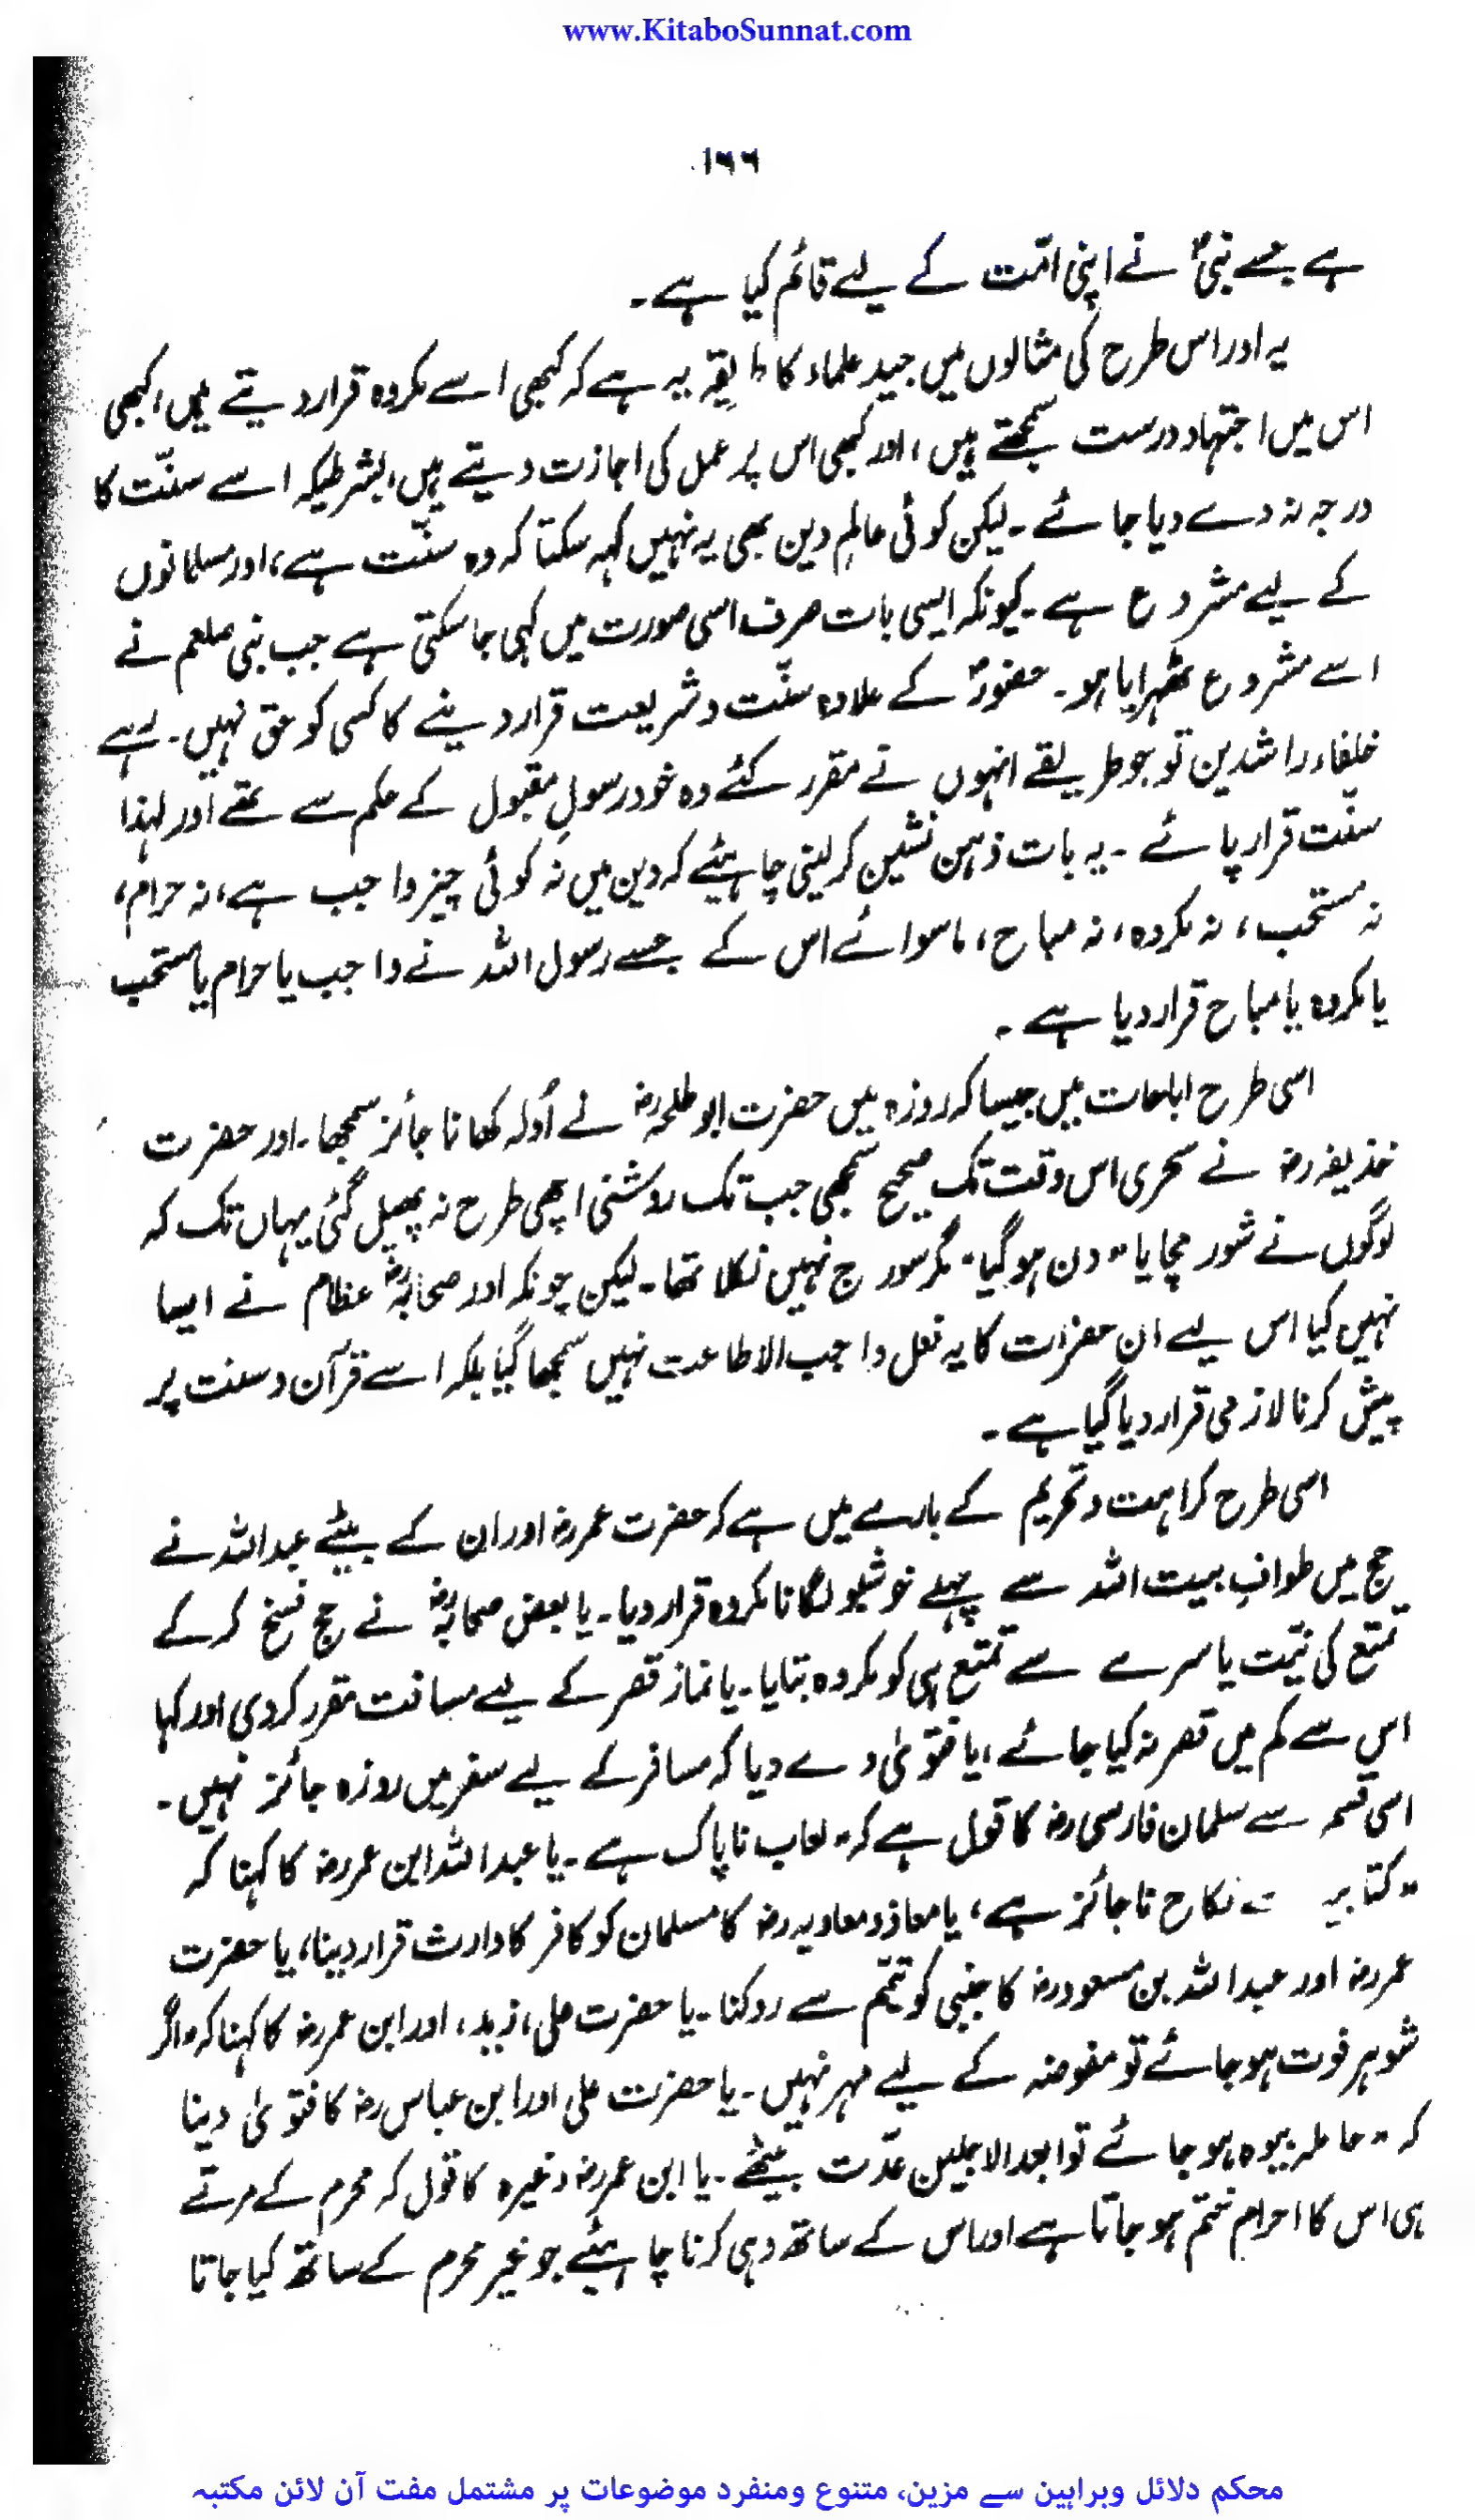 www.KitaboSunnat.com
۱۶۶
ہے جسے نبیؐ نے اپنی امّت کے لیے قائم کیا ہے۔
یہ اور اس طرح کی مثالوں میں جید علماء کا طریقہ یہ ہے کہ کبھی اسے مکروہ قرار دیتے ہیں، کبھی
اس میں اجتہاد درست سمجھتے ہیں، اور کبھی اس پر عمل کی اجازت دیتے ہیں، بشرطیکہ اسے سنّت کا
درجہ نہ دے دیا جائے۔ لیکن کوئی عالمِ دین بھی یہ نہیں کہہ سکتا کہ وہ سنّت ہے، اور مسلمانوں
کے لیے مشروع ہے۔ کیونکہ ایسی بات صرف اسی صورت میں کہی جا سکتی ہے جب نبی صلعم نے
اسے مشروع ٹھہرایا ہو۔ حضورؐ کے علاوہ سنّت و شریعت قرار دینے کا کسی کو حق نہیں۔ رہے
خلفاء راشدین تو جو طریقے انہوں نے مقرر کئے وہ خود رسولِ مقبول کے حکم سے تھے اور لہٰذا
سنت قرار پائے۔ یہ بات ذہن نشین کر لینی چاہیئے کہ دین میں نہ کوئی چیز واجب ہے، نہ حرام،
نہ مستحب، نہ مکروہ، نہ مباح، ماسوائے اس کے جسے رسول اللہ نے واجب یا حرام یا مستحب
یا مکروہ یا مباح قرار دیا ہے۔
اسی طرح اباحات میں جیسا کہ روزہ میں حضرت ابو طلحہ رضؓ نے اُولہ کھانا جائز سمجھا۔ اور حضرت
حذیفہ رضؓ نے سحری اس وقت تک صحیح سمجھی جب تک روشنی اچھی طرح نہ پھیل گئی یہاں تک کہ
لوگوں نے شور مچایا "دن ہو گیا" مگر سورج نہیں نکلا تھا۔ لیکن چونکہ اور صحابہؓ عظام نے ایسا
نہیں کیا اس لیے ان حضرات کا یہ فعل واجب الاطاعت نہیں سمجھا گیا بلکہ اسے قرآن و سنت پر
پیش کرنا لازمی قرار دیا گیا ہے۔
اسی طرح کراہت و تحریم کے بارے میں ہے کہ حضرت عمر رضؓ اور ان کے بیٹے عبداللہ نے
حج میں طوافِ بیت اللہ سے پہلے خوشبو لگانا مکروہ قرار دیا۔ یا بعض صحابہؓ نے حج فسخ کر کے
تمتع کی نیّت یا سرے سے تمتع ہی کو مکروہ بتایا۔ یا نماز قصر کے لیے مسافت مقرر کر دی اور کہا
اس سے کم میں قصر نہ کیا جائے، یا فتویٰ دے دیا کہ مسافر کے لیے سفر میں روزہ جائز نہیں۔
اسی قسم سے سلمان فارسی رضؓ کا قول ہے کہ "لعاب ناپاک ہے۔ یا عبداللہ ابن عمر رضؓ کا کہنا کہ
"کتابیہ سے نکاح ناجائز ہے، یا معاذ و معاویہ رضؓ کا مسلمان کو کافر کا وارث قرار دینا، یا حضرت
عمر رضؓ اور عبداللہ بن مسعود رضؓ کا جنبی کو تیمّم سے روکنا۔ یا حضرت علی، زید، اور ابن عمر رضؓ کا کہنا کہ "اگر
شوہر فوت ہو جائے تو مفوضہ کے لیے مہر نہیں۔ یا حضرت علی اور ابن عباس رضؓ کا فتویٰ دینا
کہ "حاملہ بیوہ ہو جائے تو ابعد الاجلین عدّت بیٹھے۔ یا ابن عمر رضؓ وغیرہ کا قول کہ محرم کے مرتے
ہی اس کا احرام ختم ہو جاتا ہے اور اس کے ساتھ وہی کرنا چاہیئے جو غیر محرم کے ساتھ کیا جاتا
محکم دلائل وبراہین سے مزین، متنوع ومنفرد موضوعات پر مشتمل مفت آن لائن مکتبہ